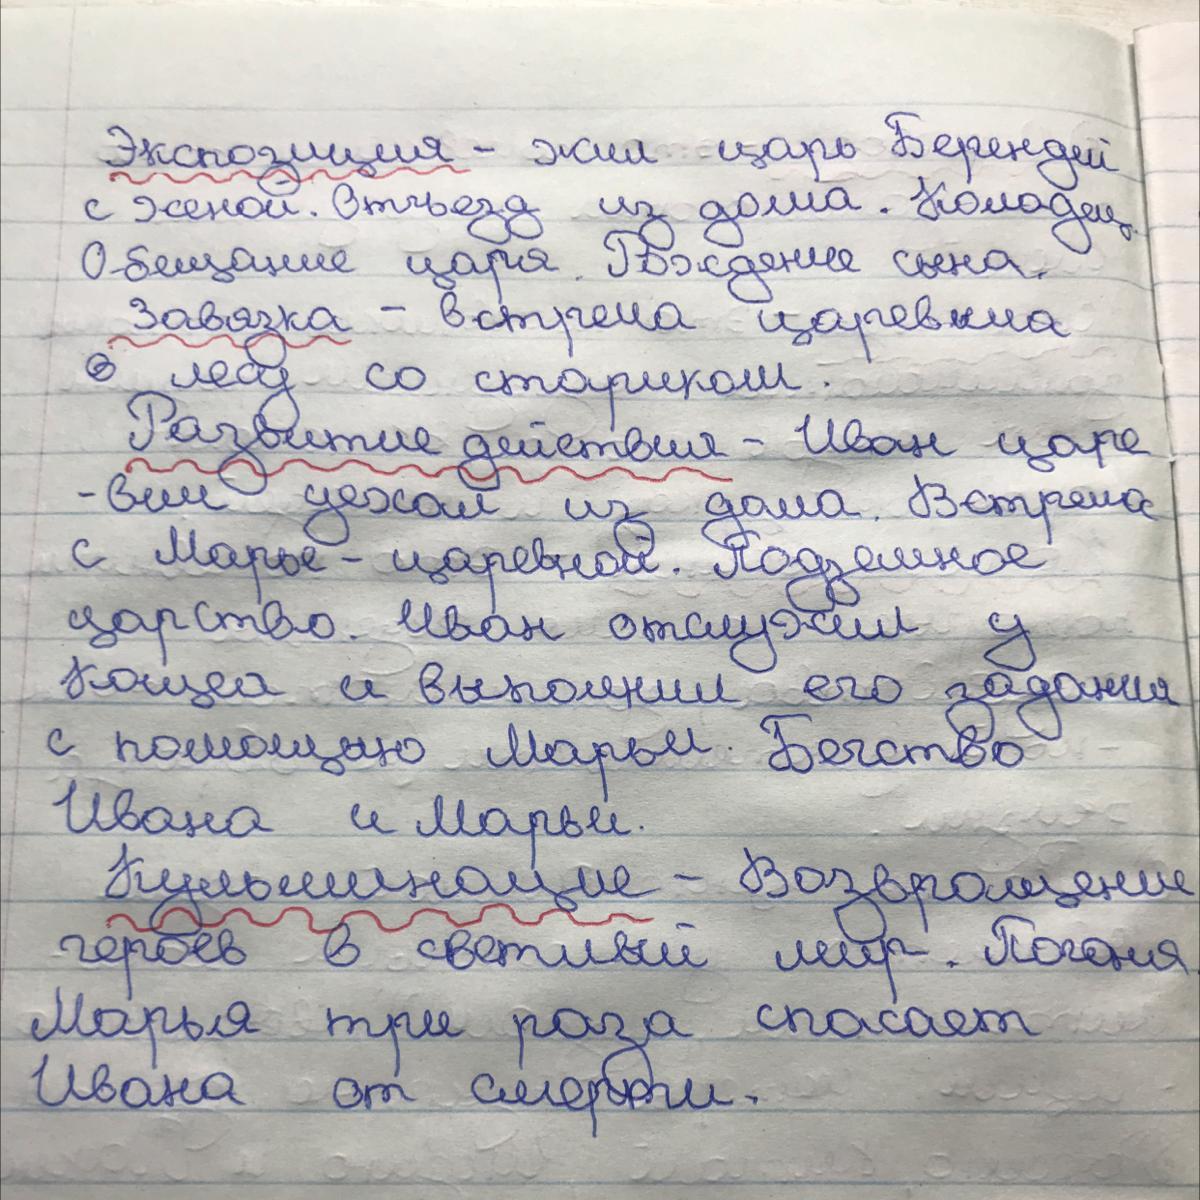 Экспозиция - жил царь Берендей
с женой. Отъезд из дома. Колодец.
Обещание царя. Рождение сына.
Завязка - встреча царевича
в лесу со стариком.
Развитие действия - Иван царе
-вич уехал из дома. Встреча
с Марьей-царевной. Подземное
царство. Иван отслужил у
Кощея и выполнил его задания
с помощью Марьи. Бегство
Ивана и Марьи.
Кульминация - Возвращение
героев в светлый мир. Погоня.
Марья три раза спасает
Ивана от смерти.